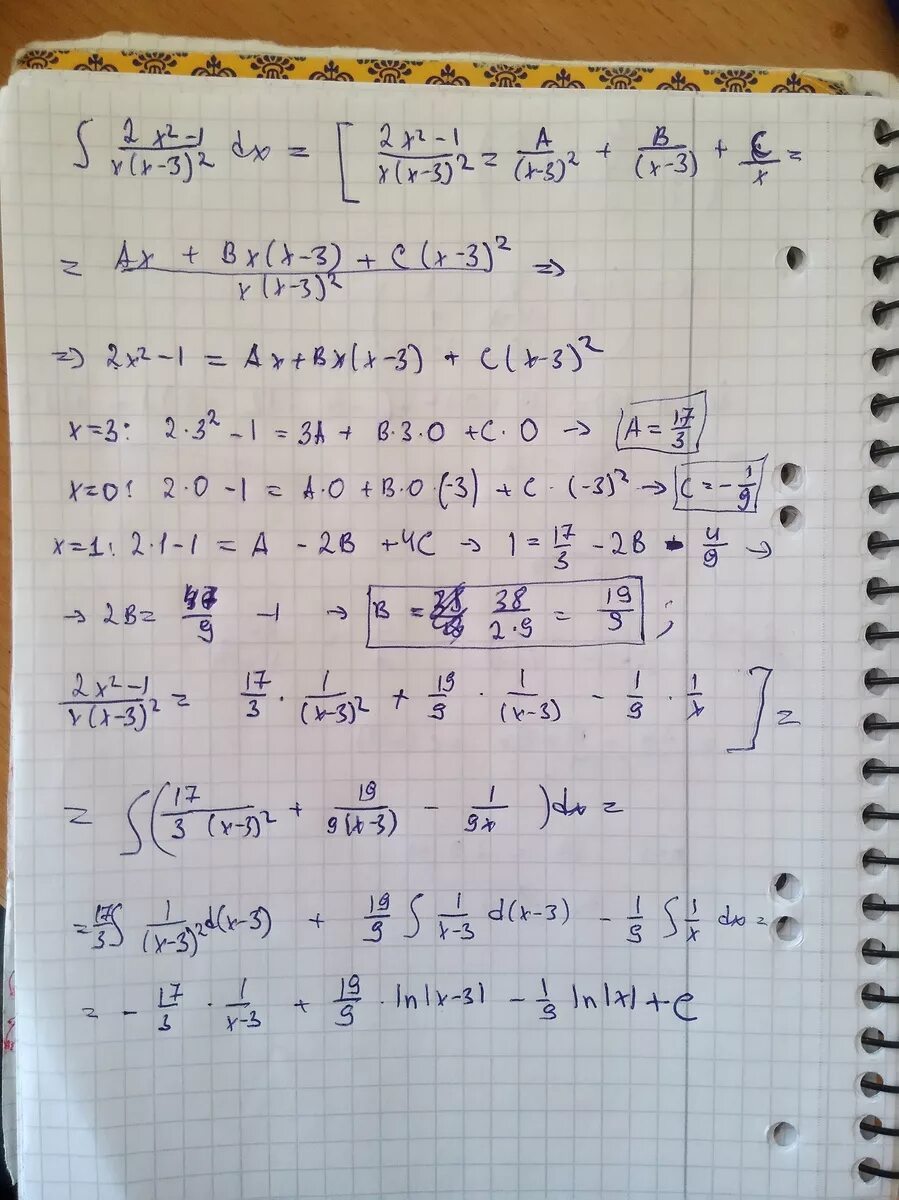 ∫ (2x²-1)/(x(x-3)²) dx = [ (2x²-1)/(x(x-3)²) = A/(x-3)² + B/(x-3) + C/x =
= (Ax + Bx(x-3) + C(x-3)²)/(x(x-3)²) =>
=> 2x²-1 = Ax+Bx(x-3) + C(x-3)²
x=3: 2·3² -1 = 3A + B·3·0 +C·0 → A = 17/3
x=0: 2·0 -1 = A·0 +B·0·(-3) + C·(-3)² → C = -1/9
x=1: 2·1-1 = A - 2B +4C → 1 = 17/3 - 2B - 4/9 →
→ 2B = 47/9 -1 → B = 38/(2·9) = 19/9 ;
(2x²-1)/(x(x-3)²) = 17/3 · 1/(x-3)² + 19/9 · 1/(x-3) - 1/9 · 1/x ] =
= ∫(17/(3(x-3)²) + 19/(9(x-3)) - 1/(9x))dx =
= 17/3 ∫ 1/(x-3)² d(x-3) + 19/9 ∫ 1/(x-3) d(x-3) - 1/9 ∫ 1/x dx =
= - 17/3 · 1/(x-3) + 19/9 · ln|x-3| - 1/9 ln|x| + C